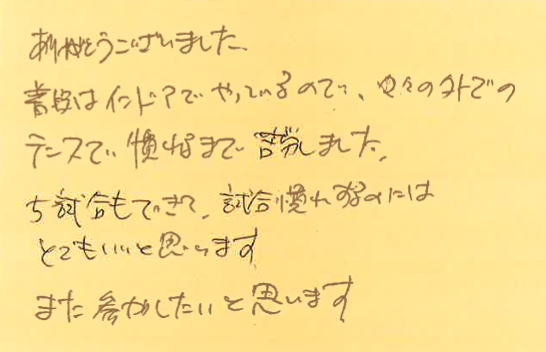 ありがとうございました。
普段はインドアでやっているので、久々の外での
テニスで、慣れるまで苦労しました。
5試合もできて、試合慣れするのには
とてもいいと思います
また参加したいと思います